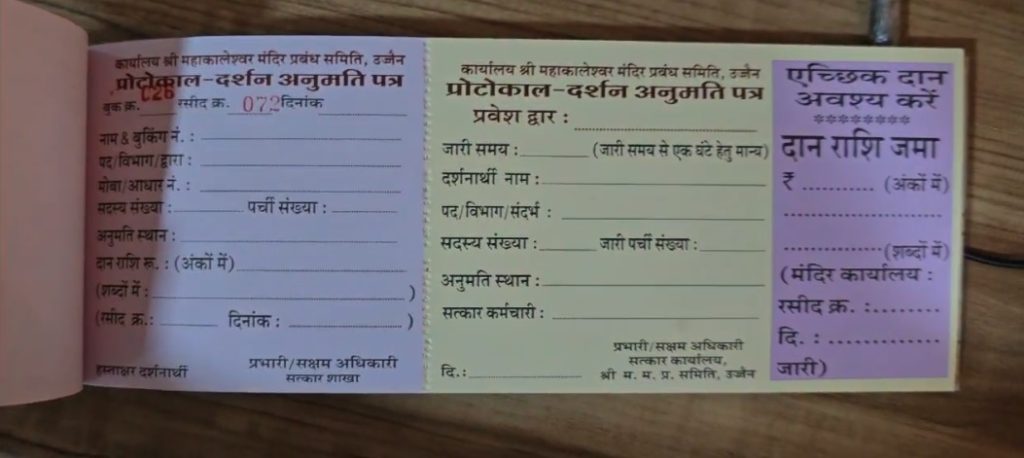 कार्यालय श्री महाकालेश्वर मंदिर प्रबंध समिति, उज्जैन
प्रोटोकाल-दर्शन अनुमति पत्र
बुक क्र. C26 रसीद क्र. 072 दिनांक
नाम & बुकिंग नं. :
पद/विभाग/द्वारा :
मोबा/आधार नं. :
सदस्य संख्या : पर्ची संख्या :
अनुमति स्थान :
दान राशि रू. : (अंकों में)
(शब्दों में : )
(रसीद क्र.: दिनांक : )
हस्ताक्षर दर्शनार्थी
प्रभारी/सक्षम अधिकारी
सत्कार शाखा
कार्यालय श्री महाकालेश्वर मंदिर प्रबंध समिति, उज्जैन
प्रोटोकाल-दर्शन अनुमति पत्र
प्रवेश द्वार :
जारी समय : (जारी समय से एक घंटे हेतु मान्य)
दर्शनार्थी नाम :
पद/विभाग/संदर्भ :
सदस्य संख्या : जारी पर्ची संख्या :
अनुमति स्थान :
सत्कार कर्मचारी :
प्रभारी/सक्षम अधिकारी
सत्कार कार्यालय,
दि.: श्री म. म. प्र. समिति, उज्जैन
एच्छिक दान
अवश्य करें
********
दान राशि जमा
₹ ........... (अंकों में)
..........................
...............(शब्दों में)
(मंदिर कार्यालय :
रसीद क्र. :..........
दि. : ...............
जारी)